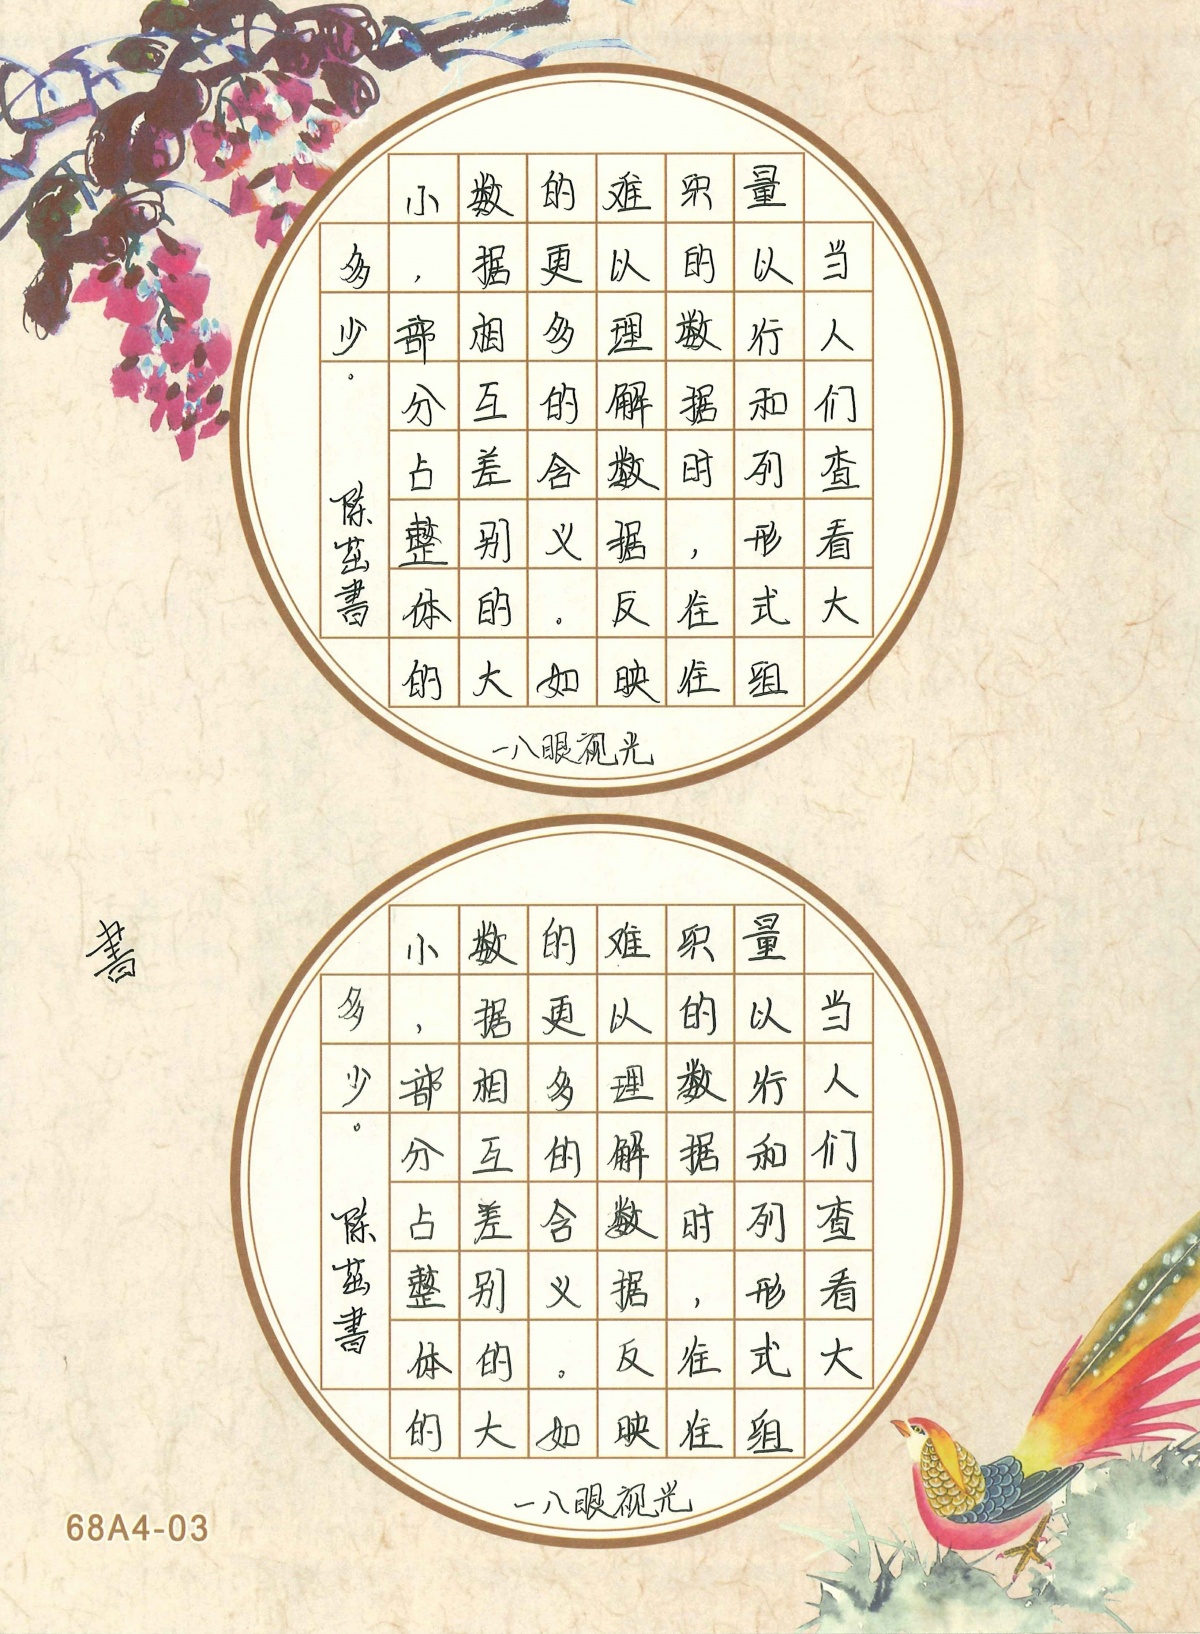 当人们查看大
量以行和列形式组
织的数据时，往往
难以理解数据反映
的更多的含义。如
数据相互差别的大
小，部分占整体的
多少。
陈茁書
一八眼视光
当人们查看大
量以行和列形式组
织的数据时，往往
难以理解数据反映
的更多的含义。如
数据相互差别的大
小，部分占整体的
多少。
陈茁書
一八眼视光
書
68A4-03